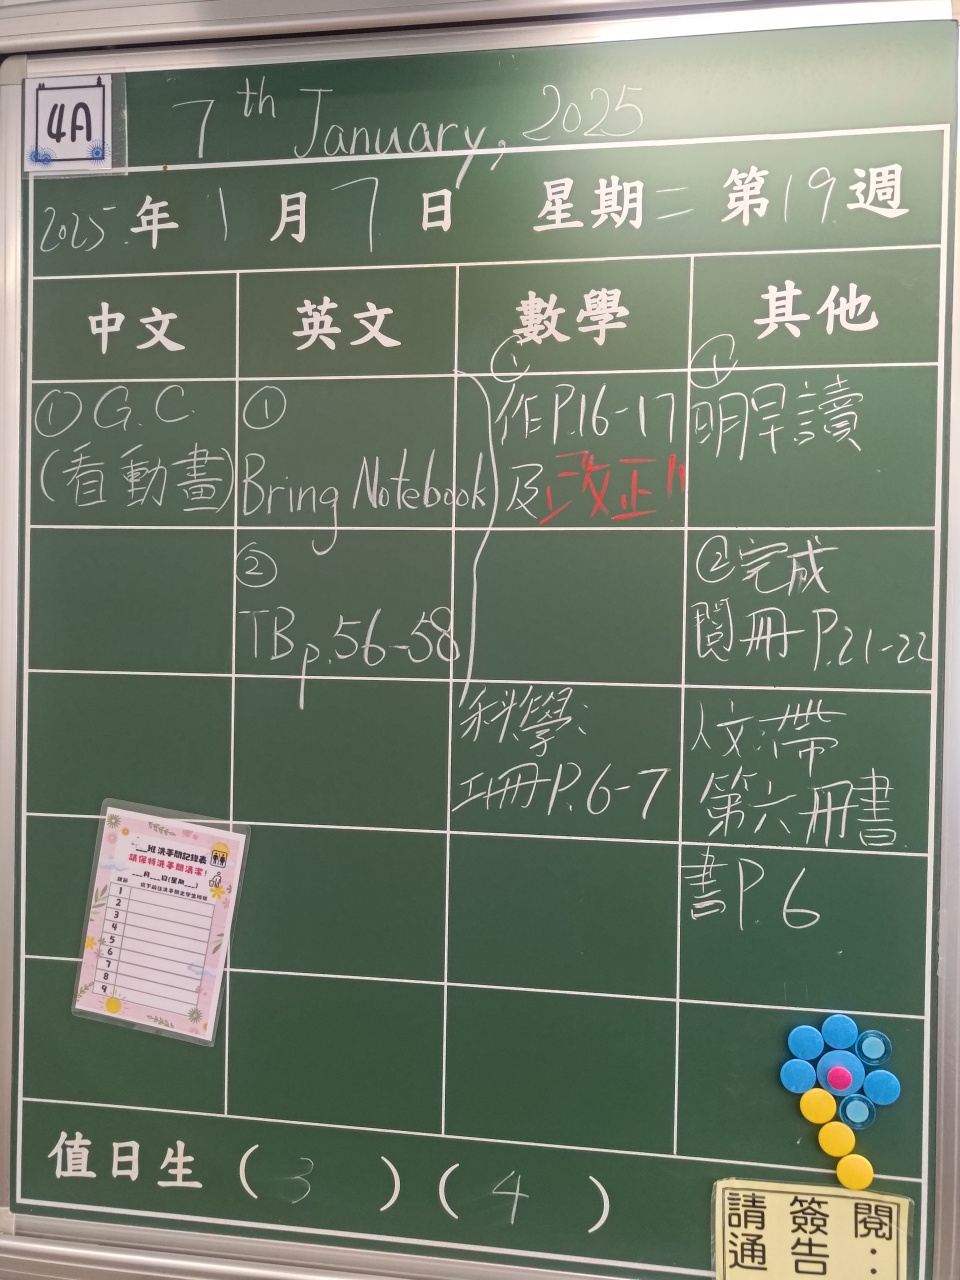 4A
7th January, 2025
2025年1月7日 星期二 第19週
中文 英文 數學 其他
① G.C.
(看動畫)
①
Bring Notebook
②
TB p.56-58
①
作P.16-17
及改正
科學:
工冊P.6-7
①
明早讀
②完成
閱冊P.21-22
人文:帶
第六冊書
書P.6
班洗手間記錄表
請保持洗手間清潔!
月 日(星期 )
1
2
3
4
5
6
7
8
9
值日生 ( 3 ) ( 4 )
請簽閱:
通告